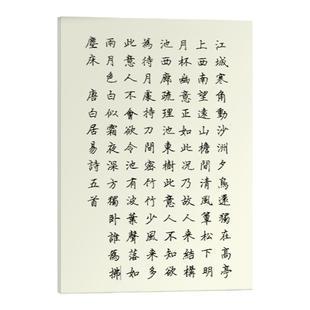 江城寒角動沙洲夕鳥還獨在高亭
上西南望遠山檐間清風簟松下明
月杯幽意正如此況乃故人來結構
池西廊疏理池東樹此意人不知欲
為待月處持刀間密竹竹少風來多
此意人不會欲令池有波葉聲落如
雨月色白似霜夜深方獨臥誰為拂
塵床 唐白居易詩五首